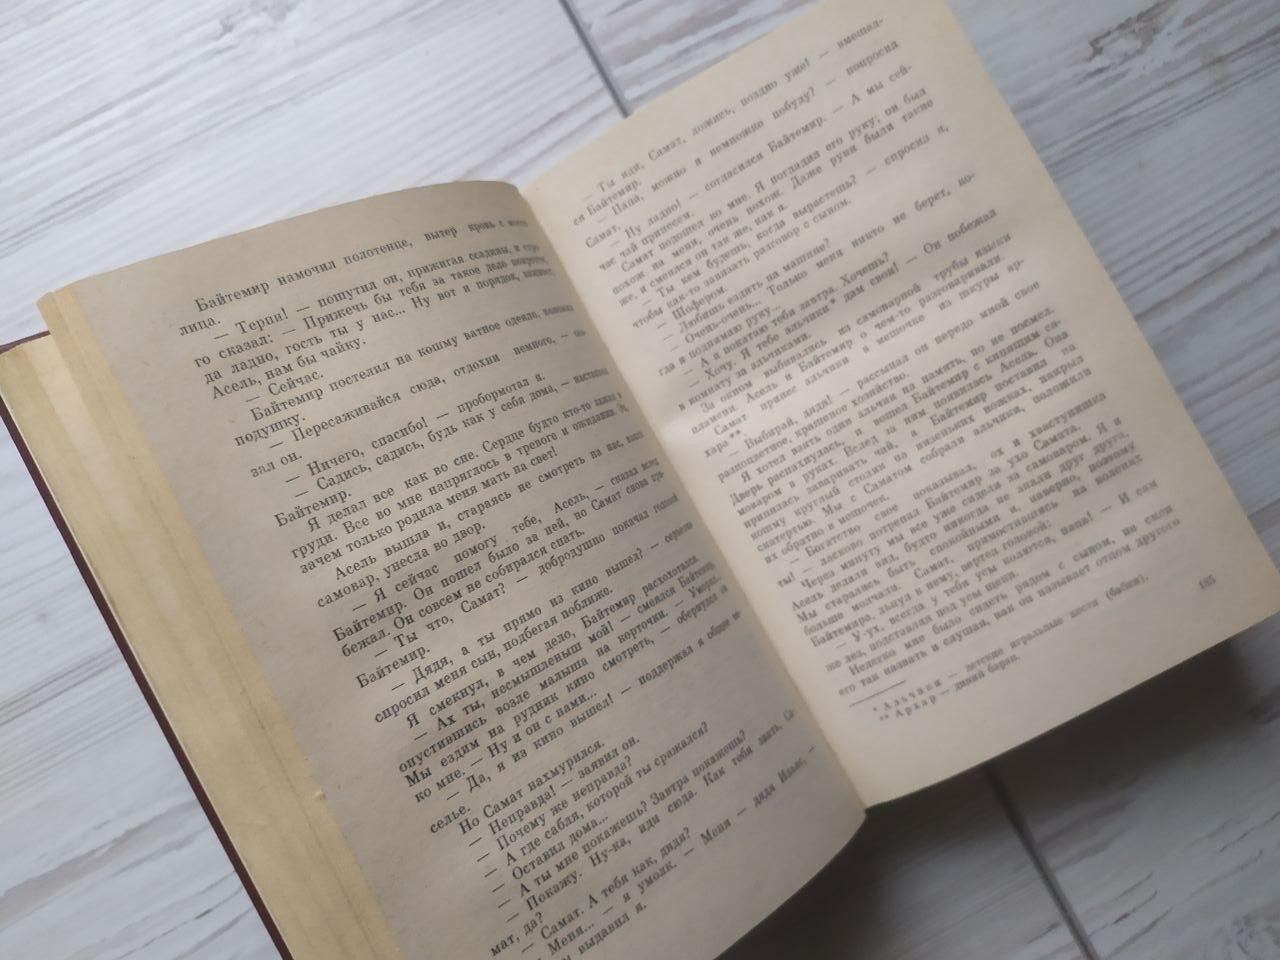 Байтемир намочил полотенце, вытер кровь с моего
лица.
— Терпи! — пошутил он, прижигая ссадины, и
го сказал: — Прижечь бы тебя за такое дело покрепче,
да ладно, гость ты у нас... Ну вот и порядок,
Асель, нам бы чайку.
— Сейчас.
Байтемир постелил на кошму ватное одеяло, положил
подушку.
— Пересаживайся сюда, отдохни немного, —
зал он.
— Ничего, спасибо! — пробормотал я.
— Садись, садись, будь как у себя дома, — настаивал
Байтемир.
Я делал все как во сне. Сердце будто кто-то зажал в
груди. Все во мне напряглось в тревоге и ожидании. Эх,
зачем только родила меня мать на свет!
Асель вышла и, стараясь не смотреть на нас, взяла
самовар, унесла во двор.
— Я сейчас помогу тебе, Асель, — сказал вслед
Байтемир. Он пошел было за ней, но Самат снова при-
бежал. Он совсем не собирался спать.
— Ты что, Самат? — добродушно покачал головой
Байтемир.
— Дядя, а ты прямо из кино вышел? — серьезно
спросил меня сын, подбегая поближе.
Я смекнул, в чем дело, Байтемир расхохотался.
— Ах ты, несмышленыш мой! — смеялся Байтемир,
опустившись возле малыша на корточки. — Уморил...
Мы ездим на рудник кино смотреть, — обернулся он
ко мне. — Ну и он с нами...
— Да, я из кино вышел! — поддержал я общее ве-
селье.
Но Самат нахмурился.
— Неправда! — заявил он.
— Почему же неправда?
— А где сабля, которой ты сражался?
— Оставил дома...
— А ты мне покажешь? Завтра покажешь?
— Покажу. Ну-ка, иди сюда. Как тебя звать, Са-
мат, да?
— Самат. А тебя как, дядя?
— Меня... — я умолк. — Меня — дядя Ильяс, —
выдавил я.
— Ты иди, Самат, ложись, поздно уже! — вмешал-
ся Байтемир.
— Папа, можно я немножко побуду? — попросил
Самат.
— Ну ладно! — согласился Байтемир. — А мы сей-
час чай принесем.
Самат подошел ко мне. Я погладил его руку; он был
похож на меня, очень похож. Даже руки были такие
же, и смеялся он так же, как я.
— Ты кем будешь, когда вырастешь? — спросил я,
чтобы как-то завязать разговор с сыном.
— Шофером.
— Любишь ездить на машине?
— Очень-очень... Только меня никто не берет, ко-
гда я поднимаю руку...
— А я покатаю тебя завтра. Хочешь?
— Хочу. Я тебе альчики* дам свои! — Он побежал
в комнату за альчиками.
За окном выбивались из самоварной трубы языки
пламени. Асель и Байтемир о чем-то разговаривали.
Самат принес альчики в мешочке из шкуры ар-
хара**.
— Выбирай, дядя! — рассыпал он передо мной свое
разноцветное, крашеное хозяйство.
Я хотел взять один альчик на память, но не посмел.
Дверь распахнулась, и вошел Байтемир с кипящим са-
моваром в руках. Вслед за ним появилась Асель. Она
принялась заваривать чай, а Байтемир поставил на
кошму круглый столик на низеньких ножках, накрыл
скатертью. Мы с Саматом собрали альчики, положили
их обратно в мешочек.
— Богатство свое показывал, ох и хвастунишка
ты! — ласково потрепал Байтемир за ухо Самата.
Через минуту мы все уже сидели за самоваром. Я и
Асель делали вид, будто никогда не знали друг друга.
Мы старались быть спокойными и, наверно, поэтому
больше молчали. Самат, примостившись на коленях
Байтемира, льнул к нему, вертел головой:
— У-ух, всегда у тебя усы колются, папа! — И сам
же лез, подставлял под усы щеки.
Нелегко мне было сидеть рядом с сыном, не смея
его так назвать и слушая, как он называет отцом другого
* Альчики — детские игральные кости (бабки).
** Архар — дикий баран.
185